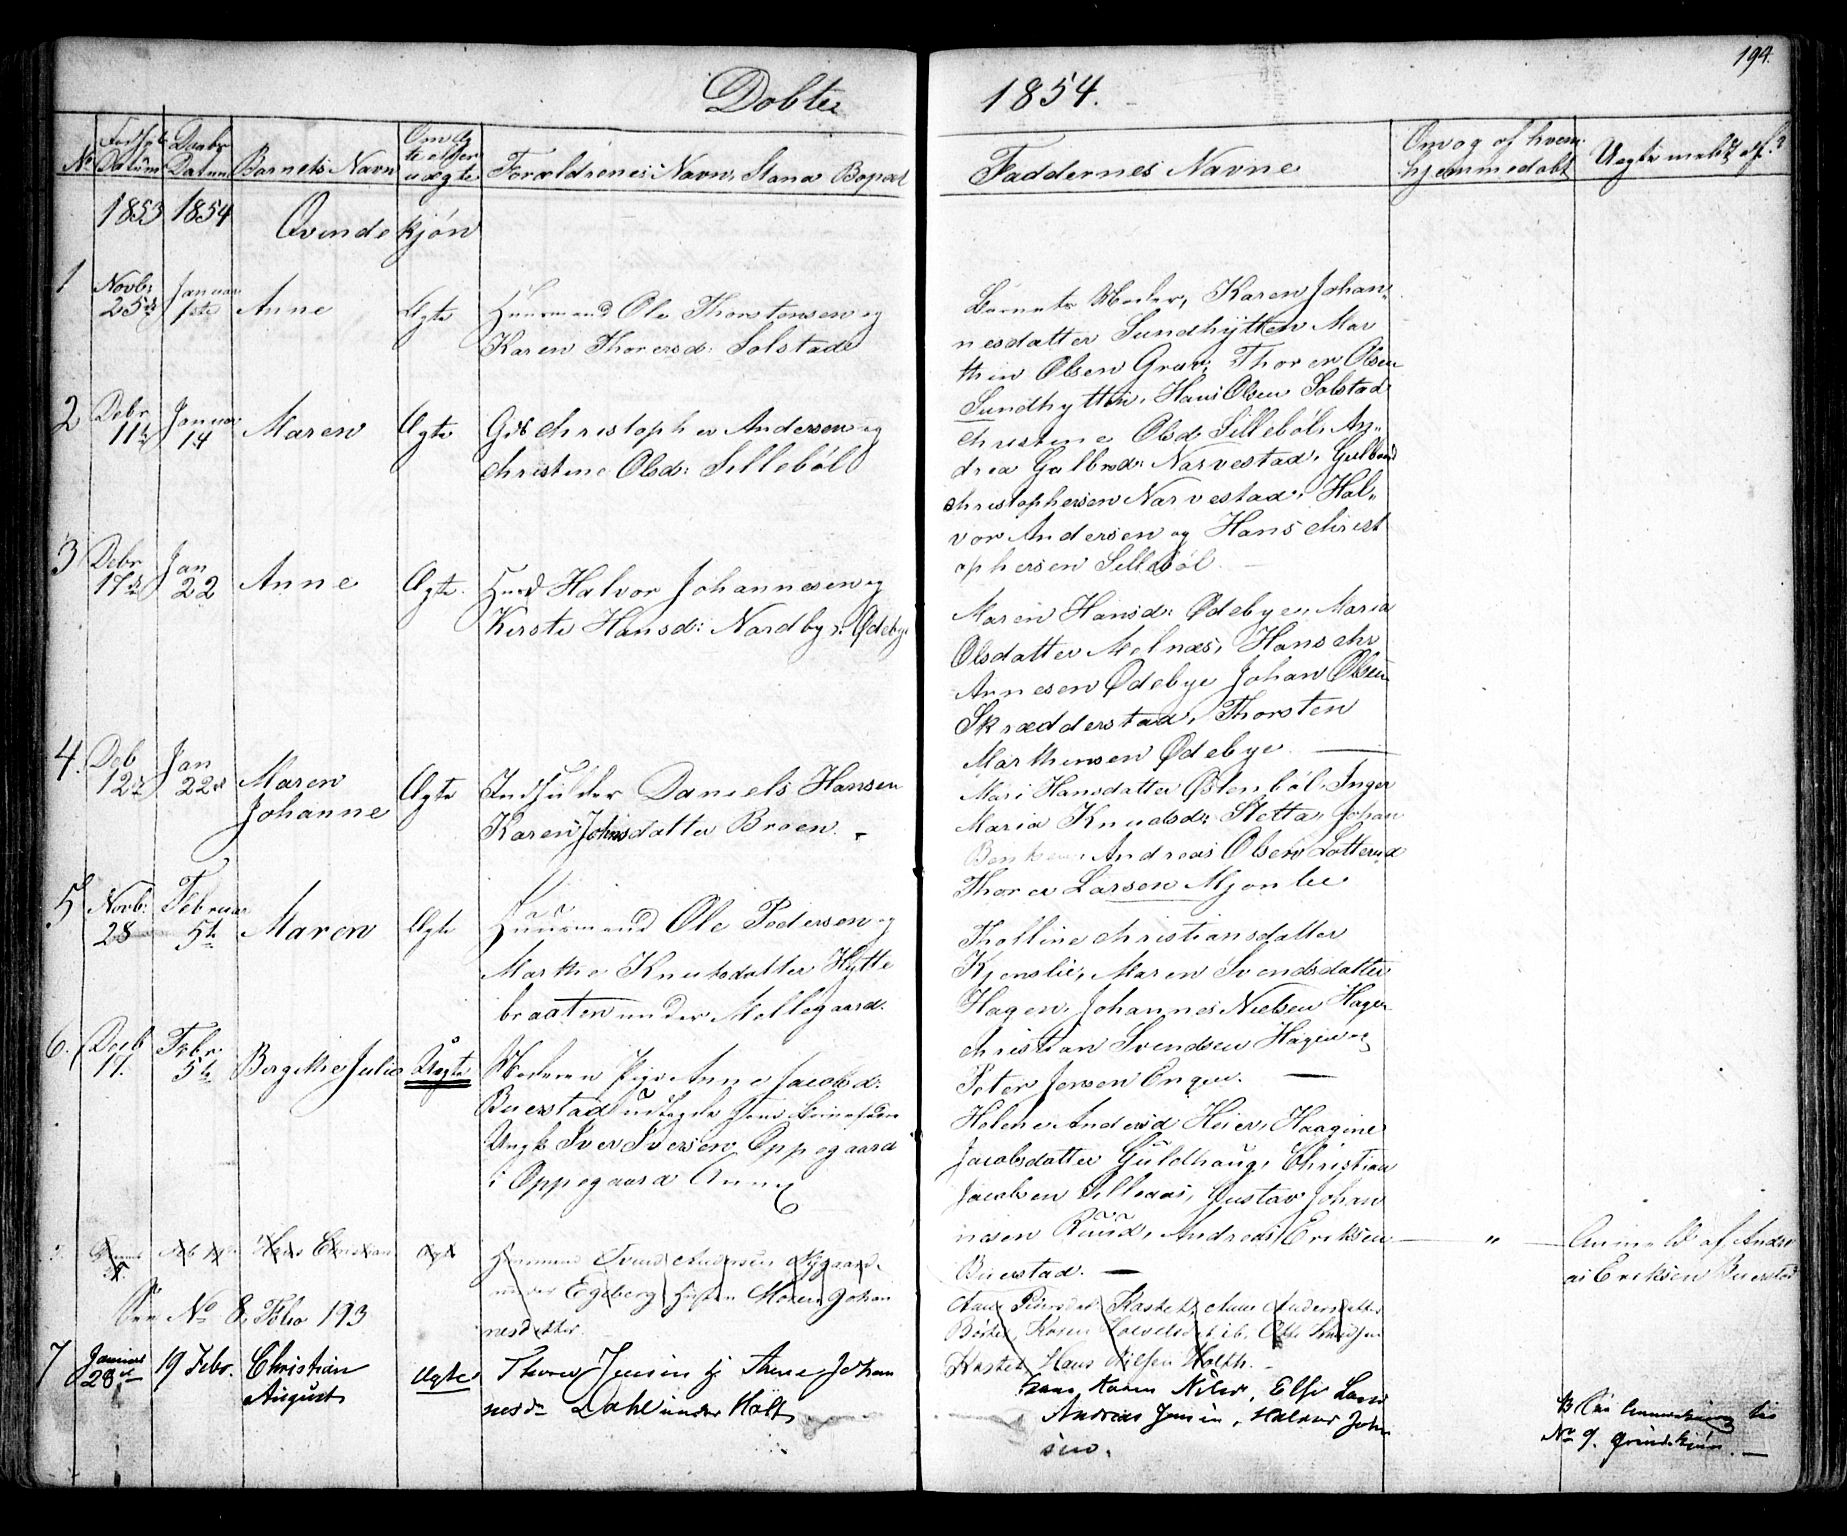 194.
Døbte 1854.
No Fødsels Datum Daabs Datum Barnets Navn Om ægte eller uægte Forældrenes Navn, Stand Bopæl Faddernes Navne Om og af hvem hjemmedøbt Uægte meldt af?
1853 1854 Qvindekjøn
1 Novbr 25de Januar 1ste Anne Ægte Huusmand Ole Thorstensen og
Karen Thorersd: Solstad
Barnets Moder, Karen Johan-
nesdatter Sundhytten Mar
thin Olsen Grav, Thorer Olsen
Sundhytten, Hans Olsen Solstad
2 Debr 11te Januar 14 Maren Ægte Gdb Christopher Andersen og
Christine Olsd: Sillebøl
Christine Olsd Sillebøl, An-
drea Gulbrd: Narvestad, Gulbrand
Christophersen Narvestad, Hal-
vor Andersen og Hans Christ
ophersen Sillebøl.
3 Debr 17de Jan 22 Anne Ægte. Husmd Halvor Johannesen og
Kirsti Hansd: Nordby Ødebye
Maren Hansd: Ødebye, Maria
Olsdatter Molnæs, Hans Chr
Annesen Ødebye Johan Olsen
Skrædderstad, Thorsten
Marthinsen Ødebye.
4. Deb 12te Jan 22de Maren
Johanne Ægte Indsidder Daniels Hansen
Karen Johnsdatter Braen.
Mari Hansdatter Østenbøl, Inger
Maria Knudsd: Sletta, Johan
Bentsen, Andreas Olsen Lotterud
Thorer Larsen Mjønlie
5 Novb: 28 Februar 5te Maren Ægte Huusmand Ole Pedersen og
Marthe Knutsdatter Hytte
braaten under Mellegaard.
Tholline Christiansdatter
Kjenslie, Maren Svendsdatter
Hagen, Johannes Nielsen Hagen
Christian Svendsen Hagen og
Peter Jensen Enger.
6. Decb 17. Febr 5te Bergithe Julie Uægte Moderen Pige Anne Jacobsd:
Buerstad udlagde som Barnefader
Ungk Iver Iversen Oppegaard
i Oppegaard Annex
Helene Andersd Heier, Haagine
Jacobsdatter Guldhaug, Christian
Jacobsen Silleaas, Gustav Johan
nesen Ruud, Andreas Eriksen
Buerstad.
" Anmeldt af Andre
as Eriksen Buerstad
Hans Christian Ægte Huusmand Svend Andersen Nygaard
under Egeberg Maren Johan
nesdatter
See No 8, Folio 193
Hans Nilsen Holth.
7 Januar 28de 19 Febr. Christian
August Ægte Thore Jensen og Anne Johan
nesdr Dahl under Holt
Karen Nilsd, Else Larsd
Andreas Jensen, Halvor Johan
sen.
No 9. Qvindekjøn.